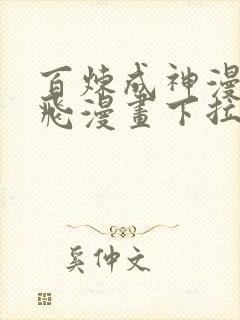 百炼成神漫
飛漫畫下拉
奚仲文